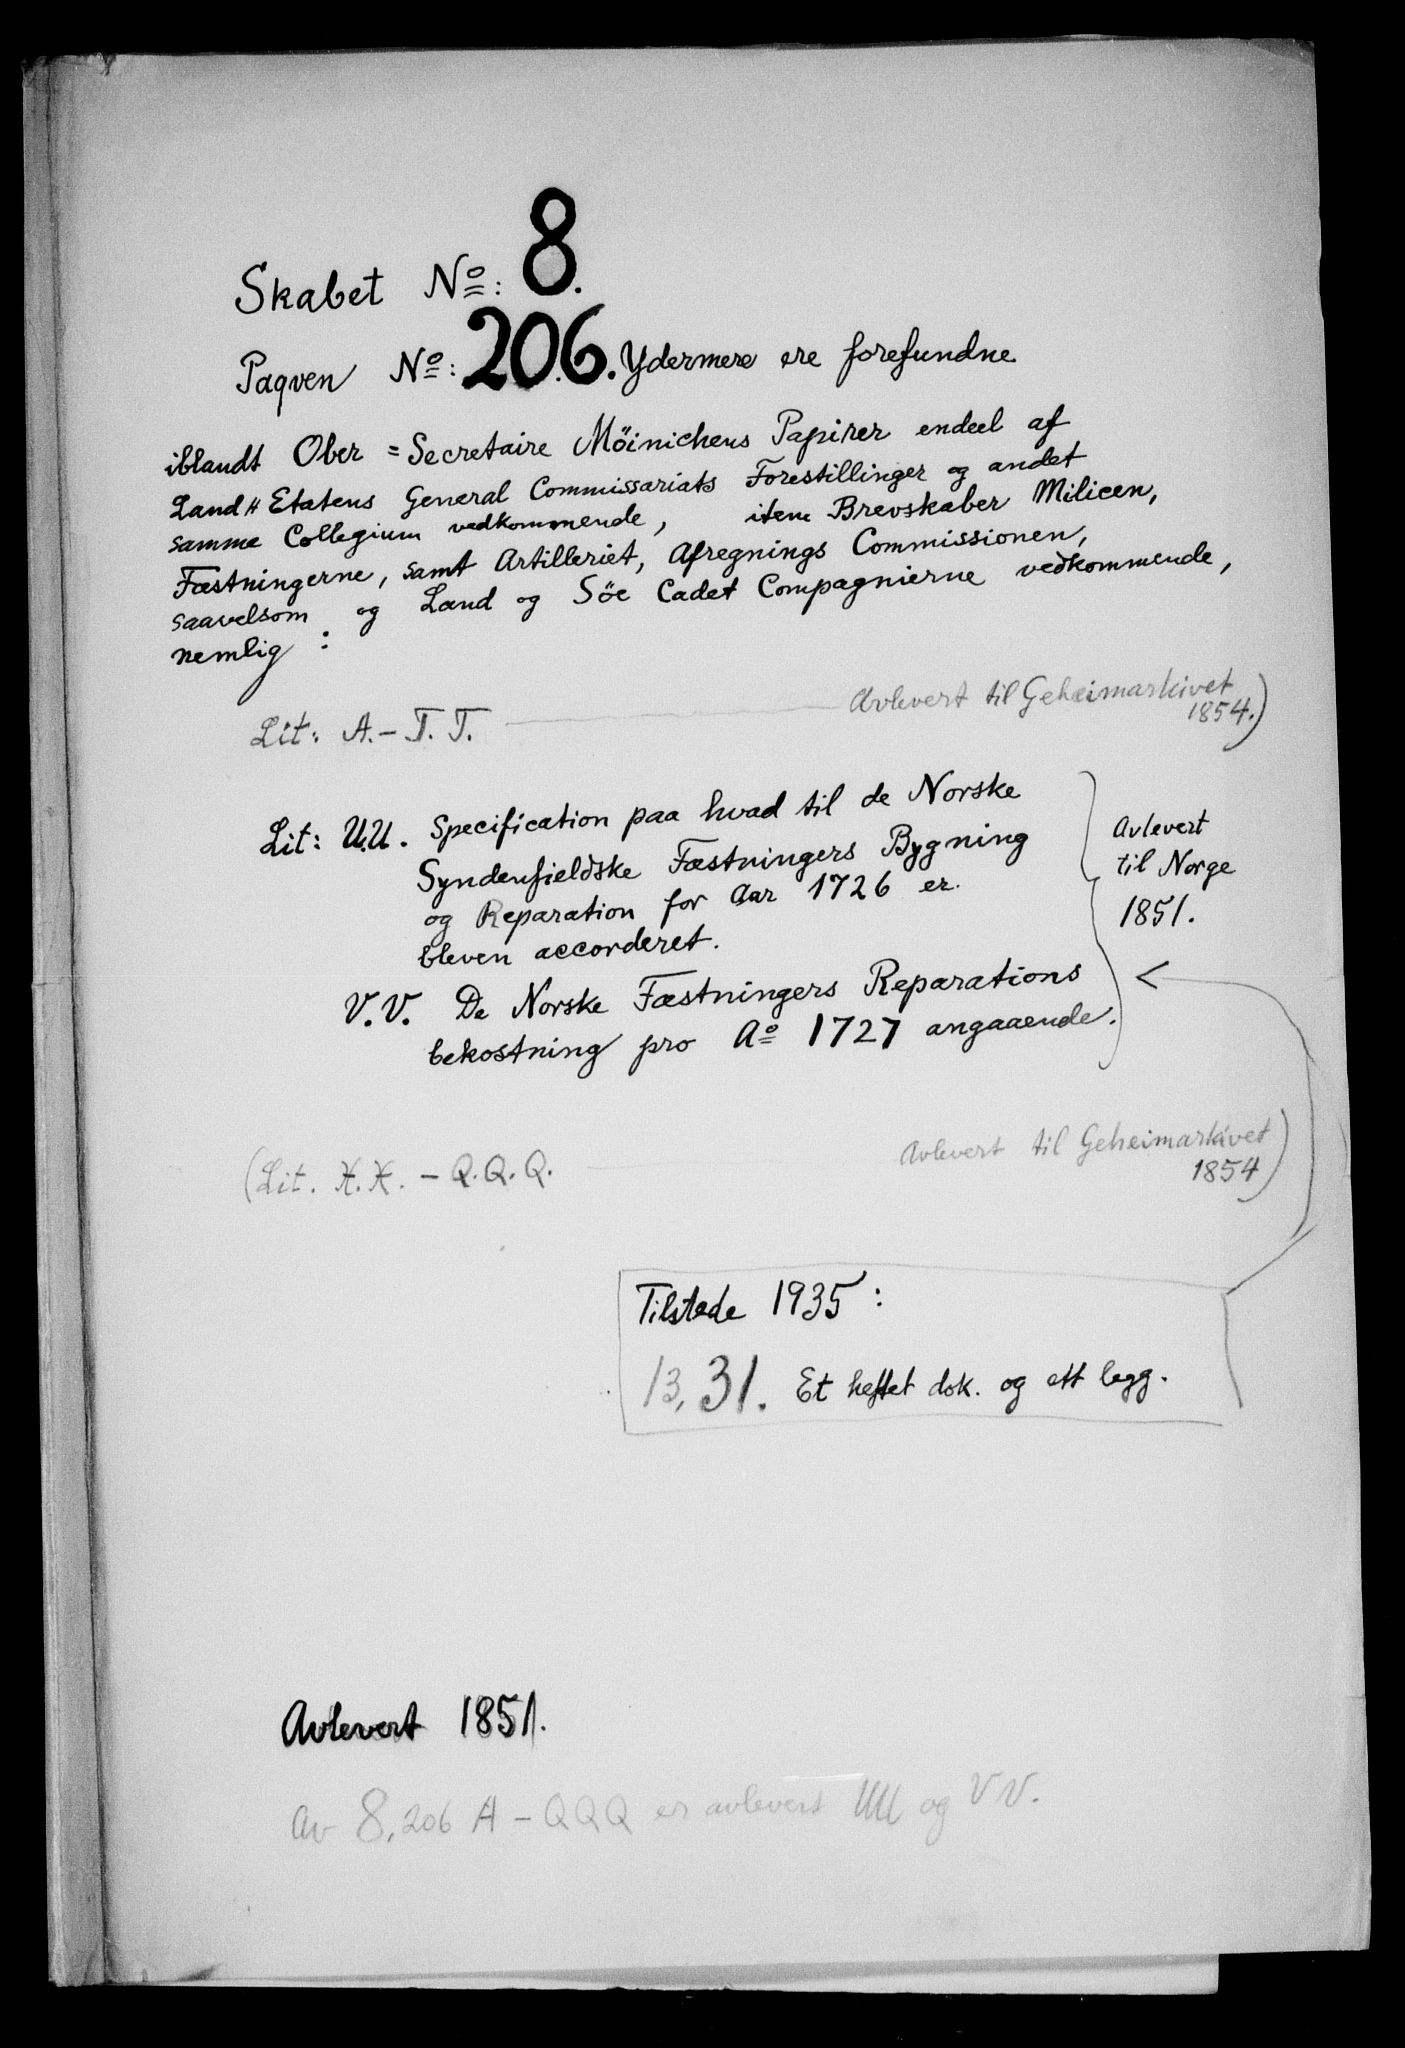 Skabet No: 8.
Paqven No: 206. Ydermere ere forefundne
iblandt Ober=Secretaire Möinichens Papirer endeel af
Land-Etatens General Commissariats Forestillinger og andet
samme Collegium vedkommende, item Brevskaber Milicen,
Fæstningerne, samt Artilleriet, Afregnings Commissionen,
saavelsom og Land og Söe Cadet Compagnierne vedkommende,
nemlig:
Lit: A.-T.T. Avlevert til Geheimarkivet
1854.)
Lit: U.U. Specification paa hvad til de Norske
Syndenfieldske Fæstningers Bygning
og Reparation for Aar 1726 er
bleven accorderet.
Avlevert
til Norge
1851.
V.V. De Norske Fæstningers Reparations
bekostning pro Ao 1727 angaaende.
(Lit. X.X. - Q.Q.Q. Avlevert til Geheimarkivet
1854)
Tilstede 1935:
13, 31. Et heftet dok. og ett legg.
Avlevert 1851.
Av 8,206 A - QQQ er avlevert UU og VV.